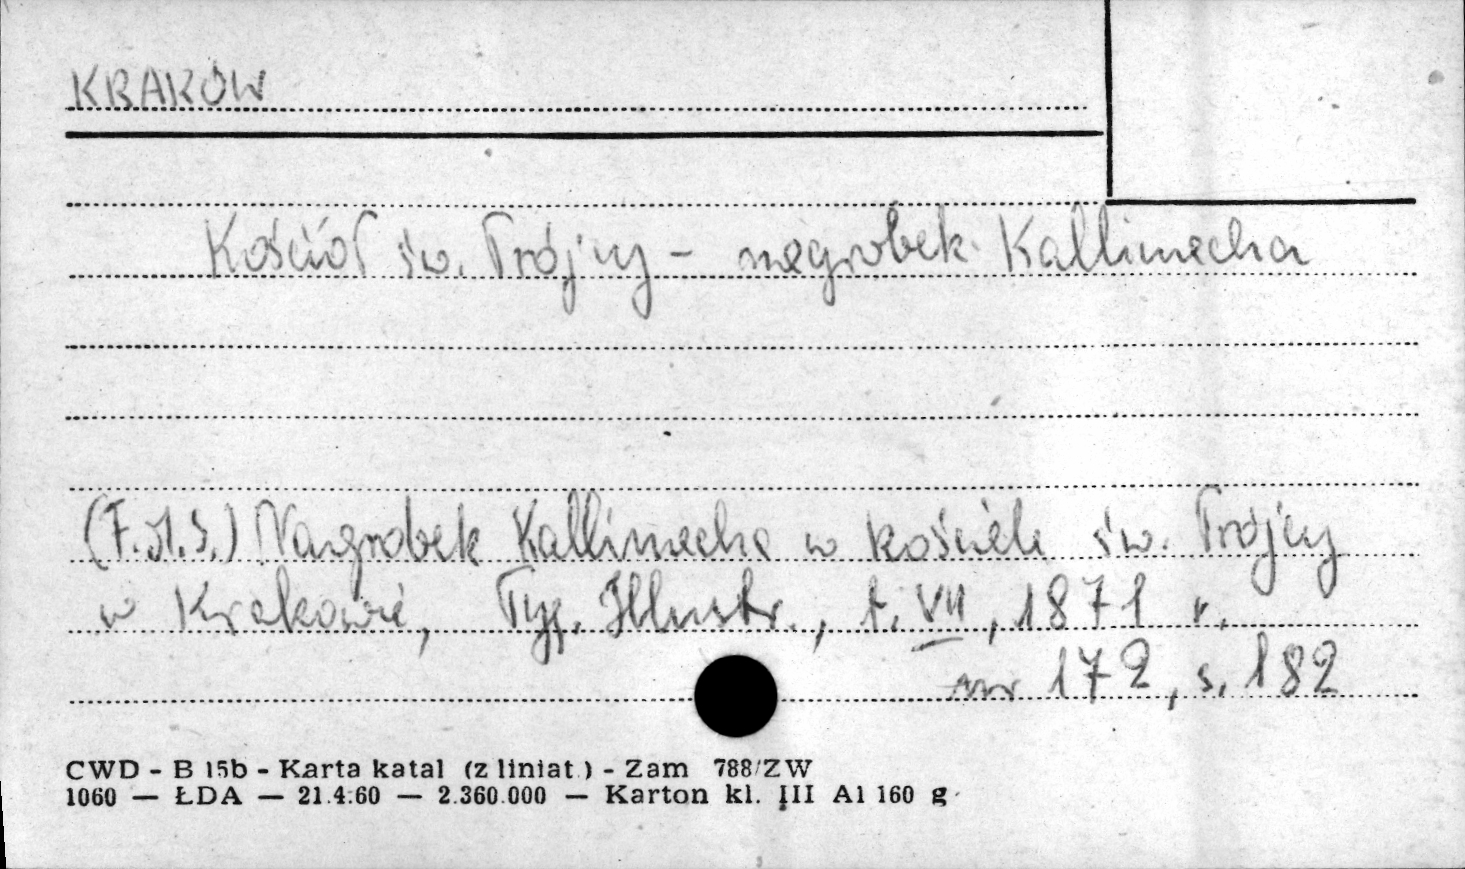 KRAKÓW
Kościół św. Trójcy - nagrobek Kallimacha
(F.M.S.) Nagrobek Kallimacha w kościele św. Trójcy
w Krakowie, Tyg. Illustr., t. VII, 1871 r.
nr 172, s. 182
CWD - B 15b - Karta katal (z liniat.) - Zam 788/ZW
1060 — ŁDA — 21.4.60 — 2.360.000 — Karton kl. III A1 160 g